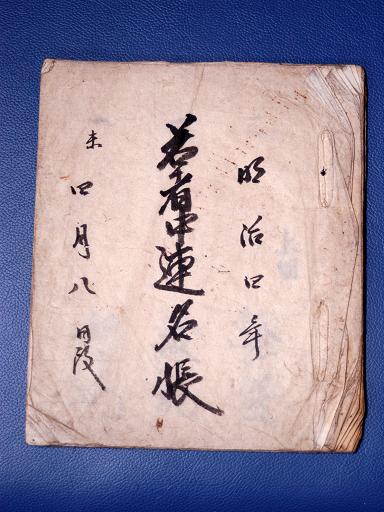 明治四年
若者中連名帳
未四月八日改